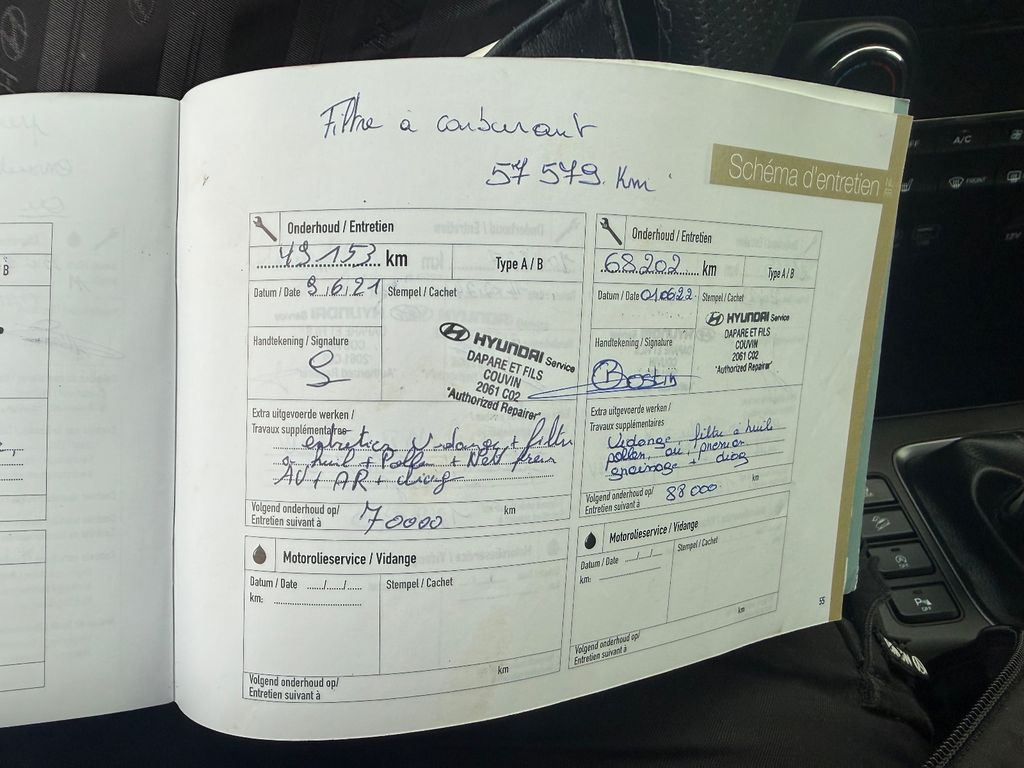 Filtre à carburant
57 579 Km
Schéma d'entretien
Onderhoud / Entretien
49 153 km
Type A / B
Datum / Date 9/6/21
Stempel / Cachet
Handtekening / Signature
HYUNDAI Service
DAPARE ET FILS
COUVIN
2061 C02
"Authorized Repairer"
Extra uitgevoerde werken /
Travaux supplémentaires
entretien Vidange + filtre
a huil + Pollen + Nett frein
AV + AR + diag
Volgend onderhoud op/
Entretien suivant à 70000 km
Motorolieservice / Vidange
Datum / Date ...../...../.....
km:
Stempel / Cachet
Volgend onderhoud op/
Entretien suivant à km
Onderhoud / Entretien
68202 km
Type A / B
Datum / Date 010622
Stempel / Cachet
Handtekening / Signature
HYUNDAI Service
DAPARE ET FILS
COUVIN
2061 C02
"Authorized Repairer"
Extra uitgevoerde werken /
Travaux supplémentaires
Vidange, filtre a huile
pollen, air, pression
graissage + diag
Volgend onderhoud op/
Entretien suivant à 88000 km
Motorolieservice / Vidange
Datum / Date ...../...../.....
km:
Stempel / Cachet
km
Volgend onderhoud op/
Entretien suivant à
55
B
A/C
FRONT
OFF